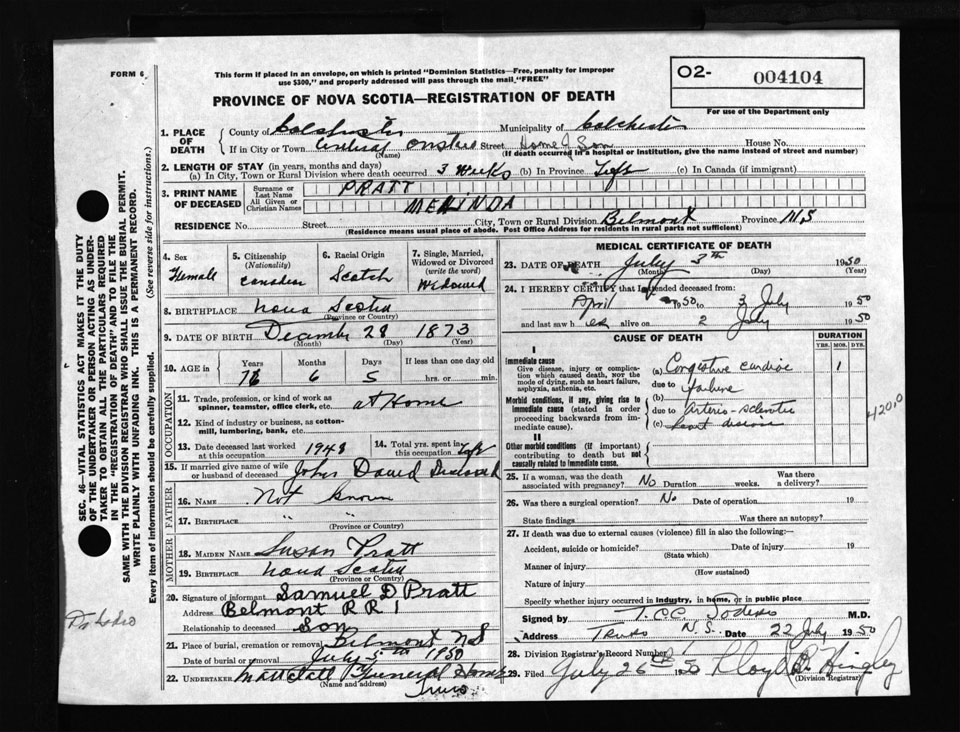 FORM 6
This form if placed in an envelope, on which is printed "Dominion Statistics—Free, penalty for improper
use $300," and properly addressed will pass through the mail "FREE"
O2- 004104
For use of the Department only
PROVINCE OF NOVA SCOTIA—REGISTRATION OF DEATH
1. PLACE OF DEATH
County of Colchester Municipality of Colchester
If in City or Town Central Onslow Street Home of Son House No.
(Name) (If death occurred in a hospital or institution, give the name instead of street and number)
2. LENGTH OF STAY (in years, months and days)
(a) In City, Town or Rural Division where death occurred 3 Weeks (b) In Province Life (c) In Canada (if immigrant)
3. PRINT NAME OF DECEASED
Surname or Last Name PRATT
All Given or Christian Names MELINDA
RESIDENCE No. Street City, Town or Rural Division Belmont Province N.S
(Residence means usual place of abode. Post Office Address for residents in rural parts not sufficient)
4. Sex Female
5. Citizenship (Nationality) Canadian
6. Racial Origin Scotch
7. Single, Married, Widowed or Divorced (write the word) Widowed
8. BIRTHPLACE Nova Scotia
(Province or Country)
9. DATE OF BIRTH December 28 1873
(Month) (Day) (Year)
10. AGE in Years Months Days If less than one day old
76 6 5 hrs. or min.
OCCUPATION
11. Trade, profession, or kind of work as spinner, teamster, office clerk, etc. at Home
12. Kind of industry or business, as cotton-mill, lumbering, bank, etc.
13. Date deceased last worked at this occupation 1948
14. Total yrs. spent in this occupation Life
15. If married give name of wife or husband of deceased John David
FATHER
16. NAME Not Known
17. BIRTHPLACE " "
(Province or Country)
MOTHER
18. MAIDEN NAME Susan Pratt
19. BIRTHPLACE Nova Scotia
(Province or Country)
20. Signature of informant Samuel D Pratt
Address Belmont RR 1
Relationship to deceased Son
21. Place of burial, cremation or removal Belmont NS
Date of burial or removal July 5th 1950
22. UNDERTAKER Mattatall Funeral Home
(Name and address) Truro
MEDICAL CERTIFICATE OF DEATH
23. DATE OF DEATH July 3th 1950
(Month) (Day) (Year)
24. I HEREBY CERTIFY that I attended deceased from:
April 1950 to 3 July 1950
and last saw her alive on 2 July 1950
CAUSE OF DEATH
DURATION
YRS. MOS. DYS.
I
Immediate cause
Give disease, injury or complication which caused death, NOT the mode of dying, such as heart failure, asphyxia, asthenia, etc.
(a) Congestive cardiac 1
due to failure
Morbid conditions, if any, giving rise to immediate cause (stated in order proceeding backwards from immediate cause).
(b)
due to Arterio-sclerotic
(c) heart disease
4200
II
Other morbid conditions (if important) contributing to death but not causally related to immediate cause.
25. If a woman, was the death associated with pregnancy? No Duration weeks. Was there a delivery?
26. Was there a surgical operation? No Date of operation 19
State findings Was there an autopsy?
27. If death was due to external causes (violence) fill in also the following:—
Accident, suicide or homicide? Date of injury 19
(State which)
Manner of injury
(How sustained)
Nature of injury
Specify whether injury occurred in industry, in home, or in public place
Signed by M.D.
Address Truro N.S. Date 22 July 1950
28. Division Registrar's Record Number
29. Filed July 26 1950 Lloyd B. Hingley
(Division Registrar)
SEC. 46—VITAL STATISTICS ACT MAKES IT THE DUTY
OF THE UNDERTAKER OR PERSON ACTING AS UNDER-
TAKER TO OBTAIN ALL THE PARTICULARS REQUIRED
IN THE "REGISTRATION OF DEATH" AND TO FILE THE
SAME WITH THE DIVISION REGISTRAR WHO SHALL ISSUE THE BURIAL PERMIT.
WRITE PLAINLY WITH UNFADING INK. THIS IS A PERMANENT RECORD.
Every item of information should be carefully supplied. (See reverse side for instructions.)